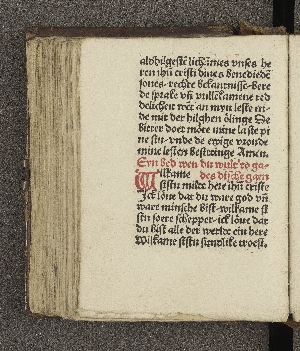 aldhilgestē lichāmes vnses he
ren ihū cristi dines benediedē
sones. rechte bekantnisse. bere
de sprake vñ vullēkamene red
delicheit wēt an myn leste en-
de mit der hilghen ölinge De
bitter doet möte mine laste pi
ne sin. vnde de ewige vroude
mine lesten bestedinge Amen.
Eyn bed wen du wult to ga-
des dische gan
Willkame
sistu midre here ihū criste
Ick löue dat du ware god vñ
ware minsche bist. wilkame si
stu soete schepper. ick löue dat
du bist alle der werlde ein here
Wilkame sistu sundlike troest.